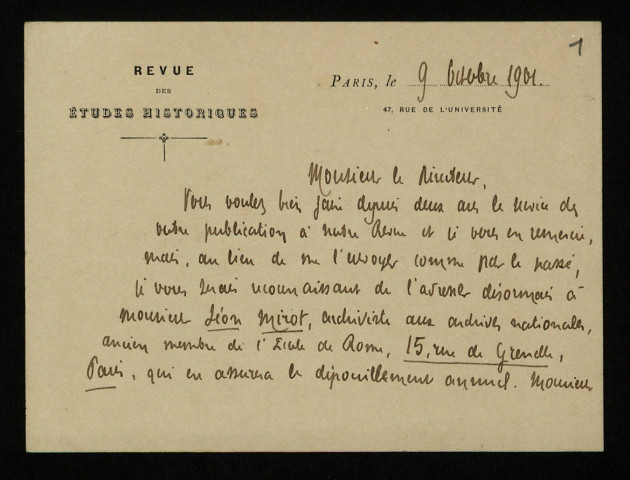 1
REVUE
DES
ÉTUDES HISTORIQUES
PARIS, le 9 Octobre 1901.
47, RUE DE L'UNIVERSITÉ
Monsieur le Directeur,
Vous voulez bien faire depuis deux ans le service de
votre publication à notre Revue et je vous en remercie,
mais, au lieu de me l'envoyer comme par le passé,
je vous serais reconnaissant de l'adresser désormais à
Monsieur Léon Mirot, archiviste aux archives nationales,
ancien membre de l'École de Rome, 15, rue de Grenelle,
Paris, qui en assurera le dépouillement annuel. Monsieur